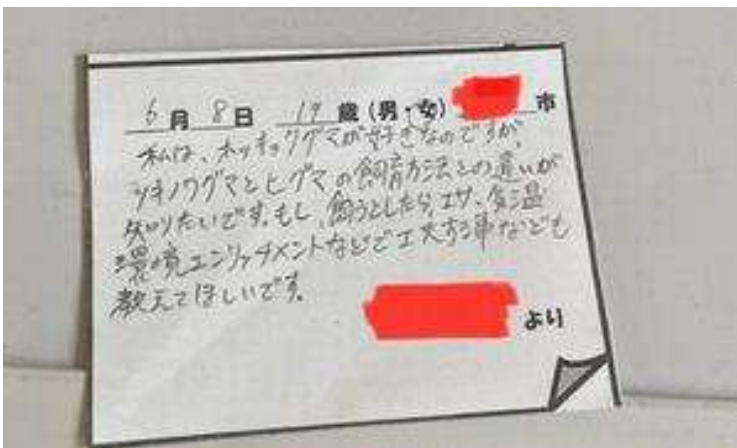 6月8日 19歳(男・女) 市
私は、ホッキョクグマが好きなのですが、
ツキノワグマとヒグマの飼育方法との違いが
知りたいです。もし、飼うとしたら、エサ、気温
環境エンリッチメントなどで工夫する事なども
教えてほしいです。
より